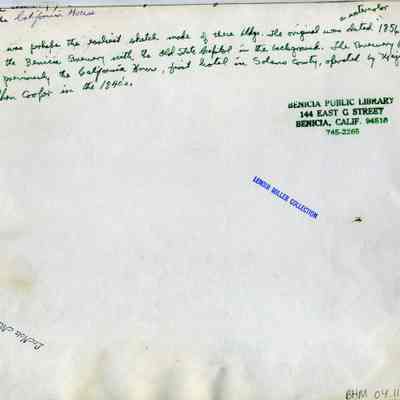 the California House
watercolor
was perhaps the earliest sketch made of these bldgs. The original was dated 1854
the Benicia Brewery with the old State Capitol in the background. The Brewery
previously the California House, first hotel in Solano County, operated by "Major"
Stephen Cooper in the 1840's.
BENICIA PUBLIC LIBRARY
144 EAST G STREET
BENICIA, CALIF. 94510
745-2265
COLLECTION
BHM 04.11